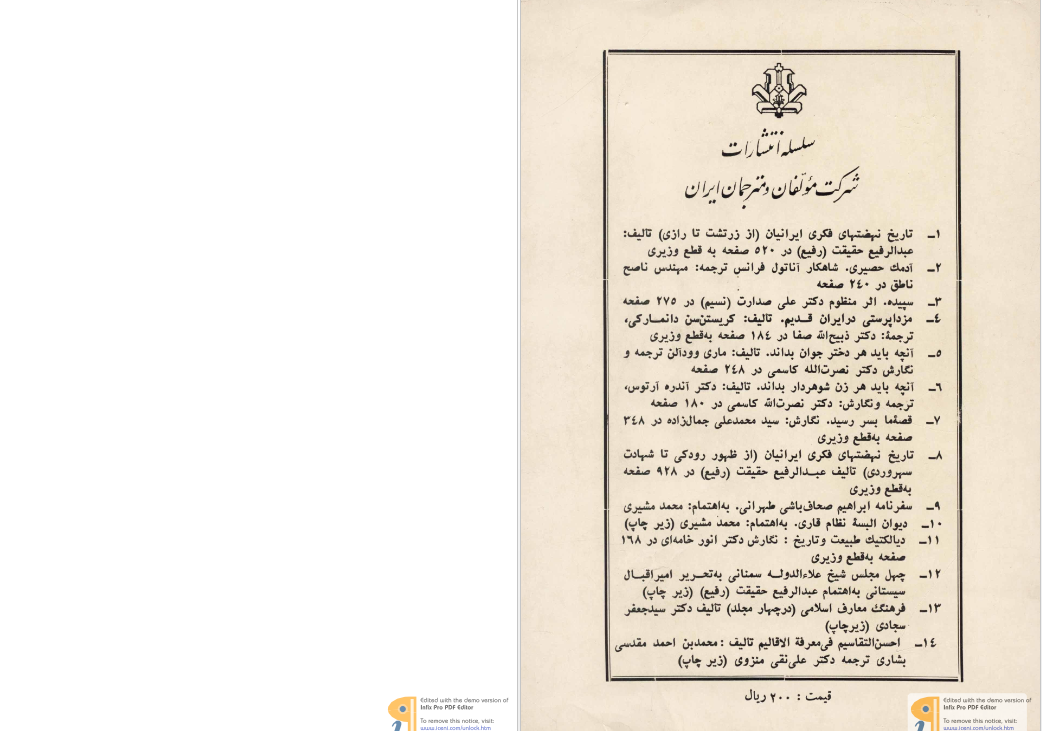 سلسله انتشارات
شرکت مؤلفان و مترجمان ایران
۱ـ تاریخ نهضتهای فکری ایرانیان (از زرتشت تا رازی) تالیف:
عبدالرفیع حقیقت (رفیع) در ۵۲۰ صفحه به قطع وزیری
۲ـ آدمك حصیری. شاهکار آناتول فرانس ترجمه: مهندس ناصح
ناطق در ۲٤۰ صفحه
۳ـ سپیده. اثر منظوم دکتر علی صدارت (نسیم) در ۲۷۵ صفحه
٤ـ مزداپرستی درایران قـدیم. تالیف: کریستن‌سن دانمـارکی،
ترجمهٔ: دکتر ذبیح‌الله صفا در ۱۸٤ صفحه به‌قطع وزیری
۵ـ آنچه باید هر دختر جوان بداند. تالیف: ماری وودآلن ترجمه و
نگارش دکتر نصرت‌الله کاسمی در ۲٤۸ صفحه
٦ـ آنچه باید هر زن شوهردار بداند. تالیف: دکتر آندره آرتوس،
ترجمه ونگارش: دکتر نصرت‌الله کاسمی در ۱۸۰ صفحه
۷ـ قصهٔما بسر رسید. نگارش: سید محمدعلی جمال‌زاده در ۳٤۸
صفحه به‌قطع وزیری
۸ـ تاریخ نهضتهای فکری ایرانیان (از ظهور رودکی تا شهادت
سهروردی) تالیف عبـدالرفیع حقیقت (رفیع) در ۹۲۸ صفحه
به‌قطع وزیری
۹ـ سفرنامه ابراهیم صحاف‌باشی طهرانی. به‌اهتمام: محمد مشیری
۱۰ـ دیوان البسهٔ نظام قاری. به‌اهتمام: محمد مشیری (زیر چاپ)
۱۱ـ دیالکتیك طبیعت وتاریخ : نگارش دکتر انور خامه‌ای در ۱٦۸
صفحه به‌قطع وزیری
۱۲ـ چهل مجلس شیخ علاءالدولـه سمنانی به‌تحـریر امیراقبـال
سیستانی به‌اهتمام عبدالرفیع حقیقت (رفیع) (زیر چاپ)
۱۳ـ فرهنگ معارف اسلامی (درچهار مجلد) تالیف دکتر سیدجعفر
سجادی (زیرچاپ)
۱٤ـ احسن‌التقاسیم فی‌معرفة الاقالیم تالیف : محمدبن احمد مقدسی
بشاری ترجمه دکتر علی‌نقی منزوی (زیر چاپ)
قیمت : ۲۰۰ ریال
Edited with the demo version of
Infix Pro PDF Editor
To remove this notice, visit:
www.iceni.com/unlock.htm
Edited with the demo version of
Infix Pro PDF Editor
To remove this notice, visit:
www.iceni.com/unlock.htm